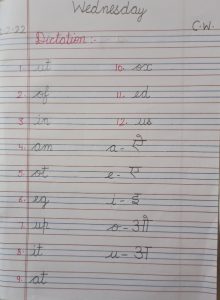 Wednesday
7.22 C.W.
Dictation :-
1. ut 10. ox
2. of 11. ed
3. in 12. us
4. am a - ऐ
5. ot e - ए
6. eg i - इ
7. up o - ओ
8. it u - अ
9. at